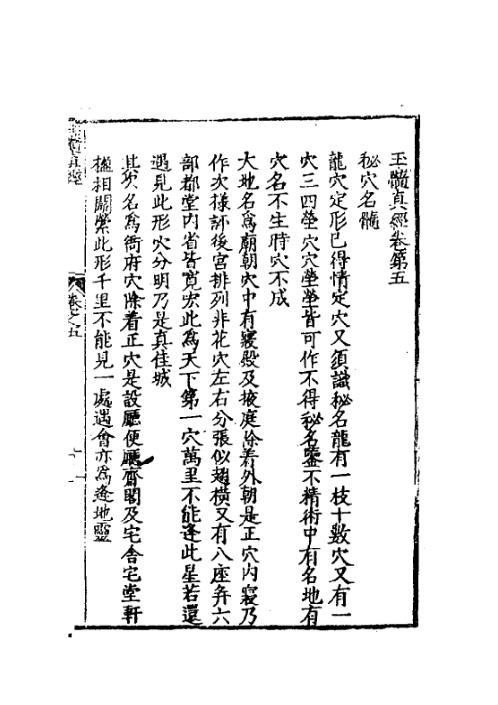 玉髓真經卷第五
秘穴名髓
龍穴定形已得情定穴又須識秘名龍有一枝十數穴又有一
穴三四塋穴穴塋塋皆可作不得秘名鑒不精術中有名地有
穴名不生時穴不成
大地名為廟朝穴中有寢殿及掖庭除着外朝是正穴內寢乃
作次樣評後宮排列非花穴左右分張似翅橫又有八座弁六
部都堂內省皆寬宏此為天下第一穴萬里不能逢此星若還
遇見此形穴分明乃是真佳城
其次名為衙府穴除着正穴是設廳便廳齋閣及宅舍宅堂軒
楹相關縈此形千里不能見一處遇會亦為逢地靈
真經
卷之五
十一